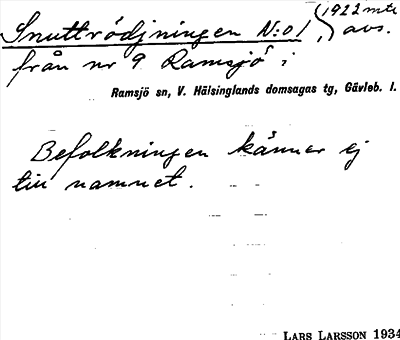 Snuttrödjningen N:o 1, 1922 mtr
avs.
från nr 9 Ramsjö i
Ramsjö sn, V. Hälsinglands domsagas tg, Gävleb. l.
Befolkningen känner ej
till namnet.
LARS LARSSON 1934